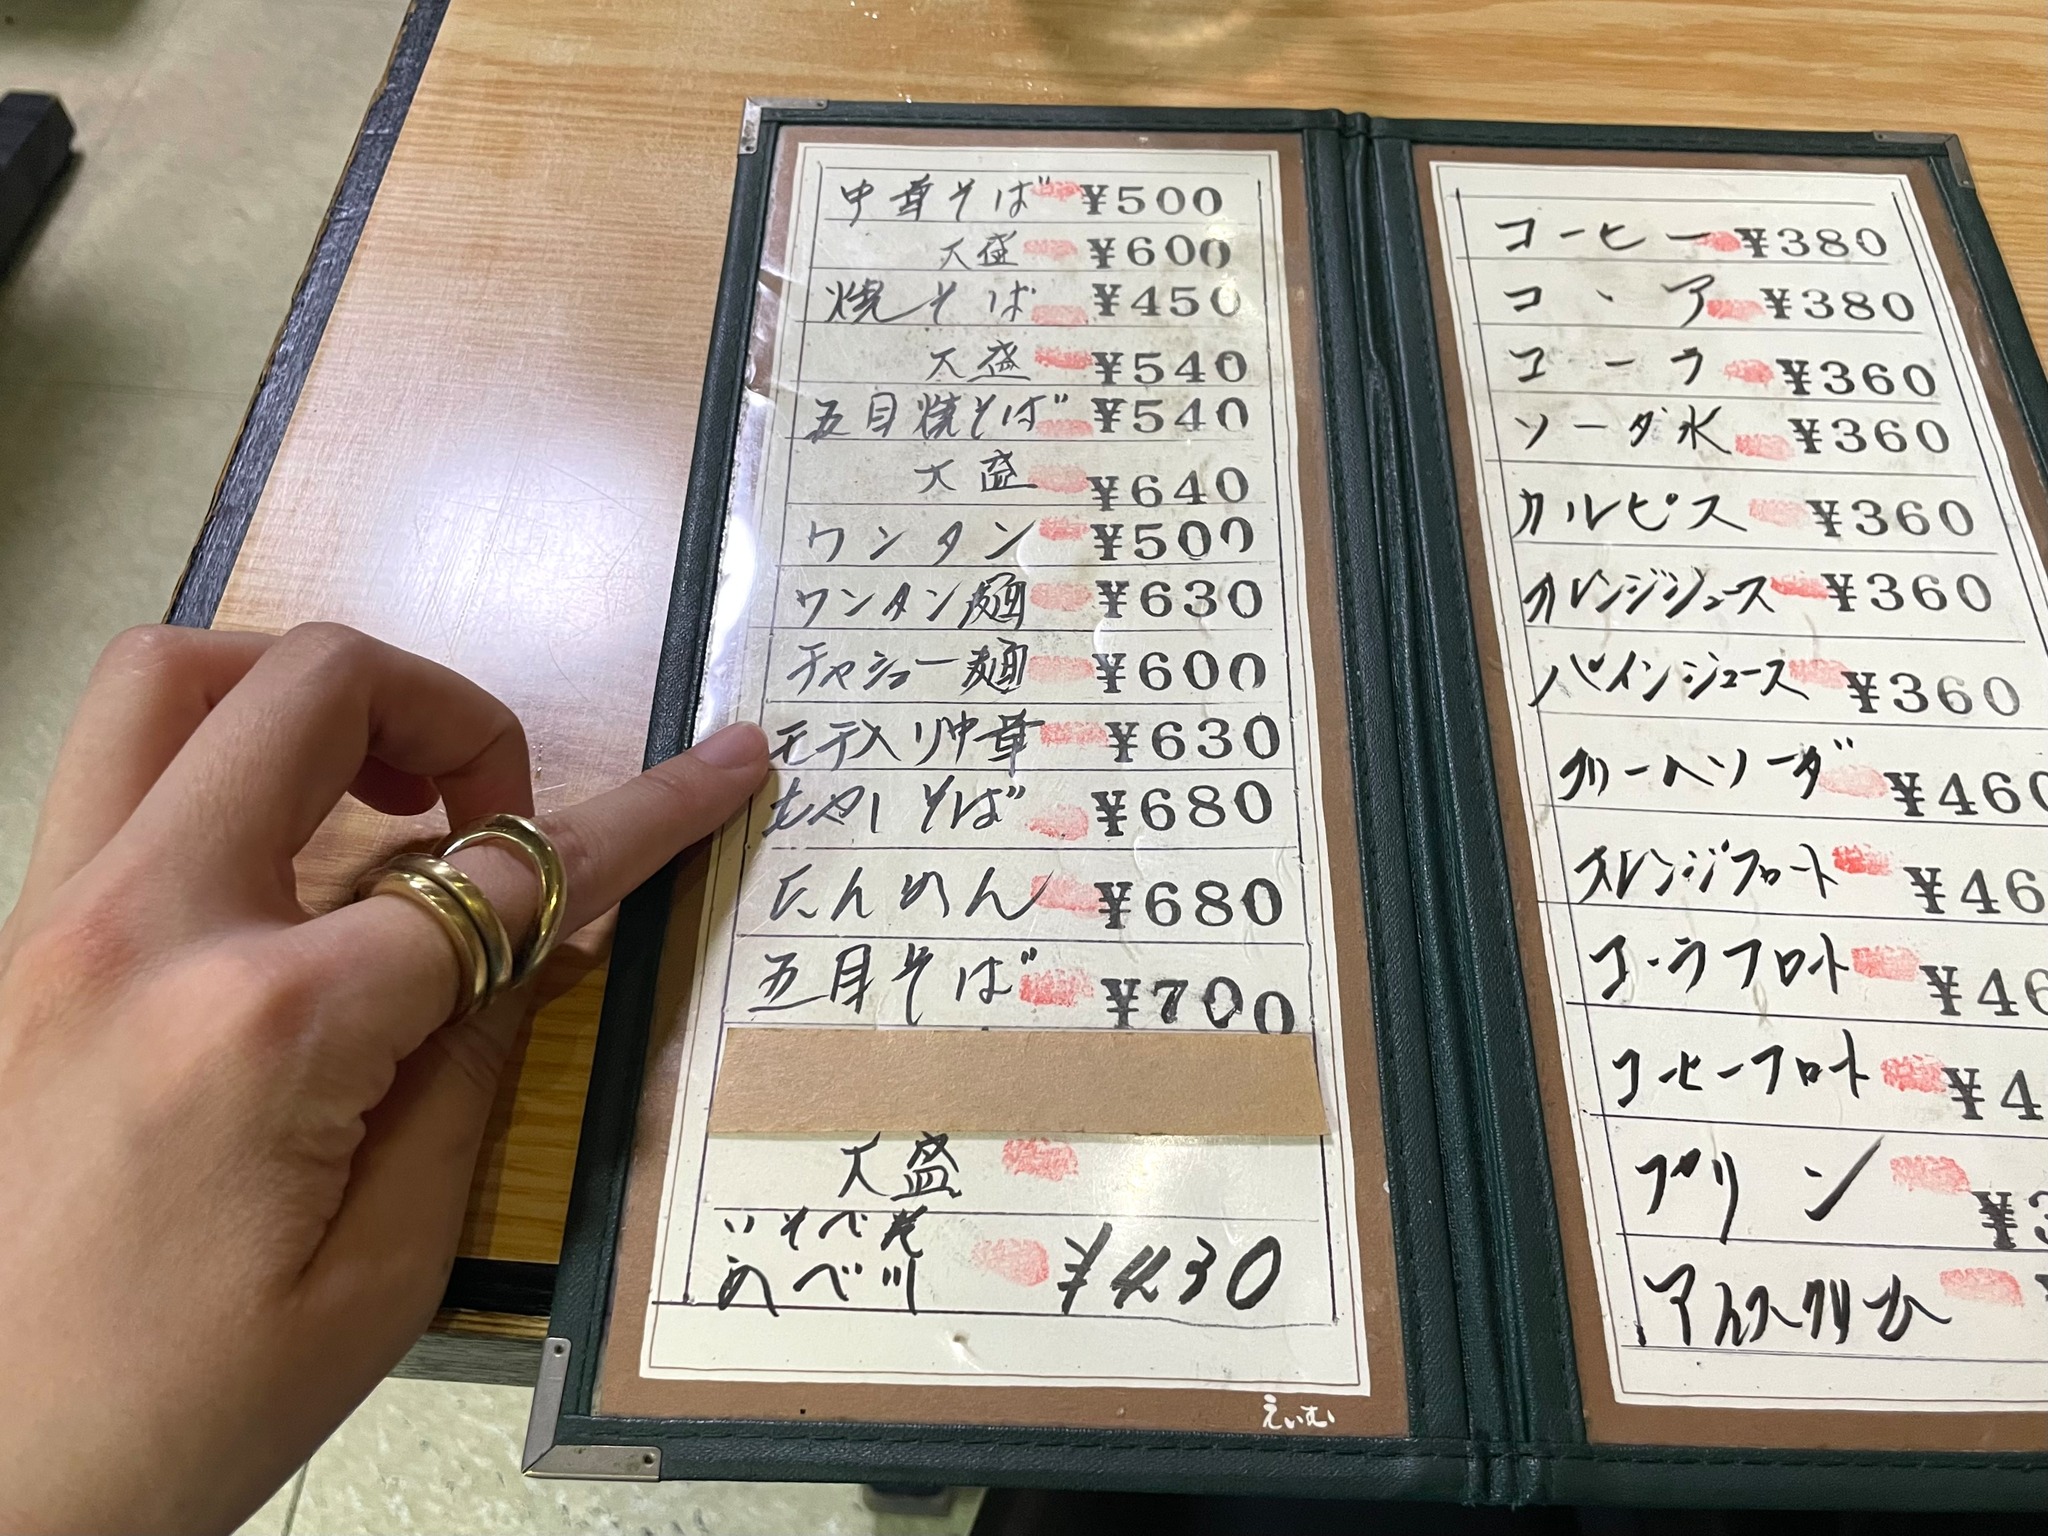 中華そば ¥500
大盛 ¥600
焼そば ¥450
大盛 ¥540
五目焼そば ¥540
大盛 ¥640
ワンタン ¥500
ワンタン麺 ¥630
チャシュー麺 ¥600
モチ入り中華 ¥630
もやしそば ¥680
たんめん ¥680
五目そば ¥700
大盛
いそべ巻
あべ川 ¥430
えいむ
コーヒー ¥380
コーア ¥380
コーラ ¥360
ソーダ水 ¥360
カルピス ¥360
オレンジジュース ¥360
パインジュース ¥360
クリームソーダ ¥460
オレンジフロート ¥46
コーラフロート ¥46
コーヒーフロート ¥4
プリン ¥3
アイスクリーム ¥